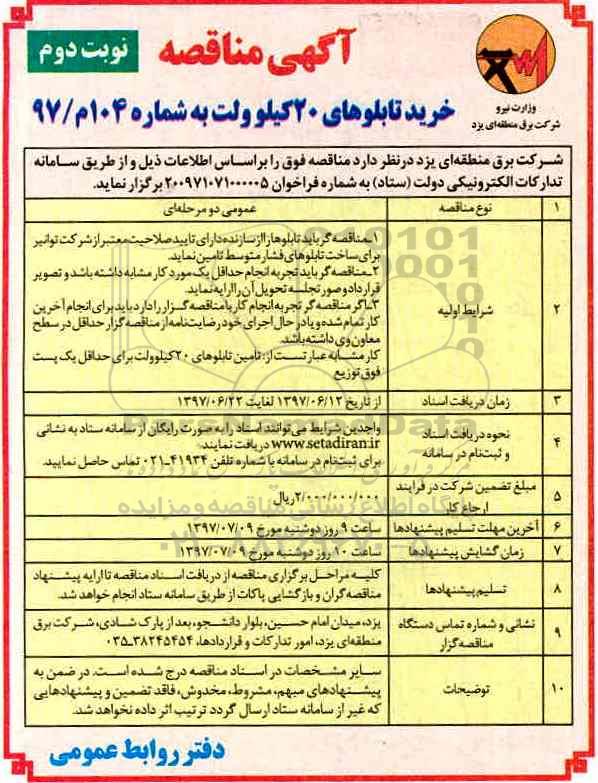 آگهی مناقصه
نوبت دوم
وزارت نیرو
شرکت برق منطقه‌ای یزد
خرید تابلوهای ۲۰کیلو ولت به شماره ۱۰۴م/۹۷
شرکت برق منطقه‌ای یزد درنظر دارد مناقصه فوق را براساس اطلاعات ذیل و از طریق سامانه
تدارکات الکترونیکی دولت (ستاد) به شماره فراخوان ۲۰۰۹۷۱۰۷۱۰۰۰۰۰۵ برگزار نماید.
۱ نوع مناقصه عمومی دو مرحله‌ای
۲ شرایط اولیه
۱ـ مناقصه‌گر باید تابلوها را از سازنده دارای تایید صلاحیت معتبر از شرکت توانیر
برای ساخت تابلوهای فشار متوسط تامین نماید.
۲ـ مناقصه‌گر باید تجربه انجام حداقل یک مورد کار مشابه داشته باشد و تصویر
قرارداد و صورتجلسه تحویل آن را ارایه نماید.
۳ـ اگر مناقصه‌گر تجربه انجام کار با مناقصه‌گزار را دارد باید برای انجام آخرین
کار تمام شده و یا در حال اجرای خود رضایت‌نامه از مناقصه‌گزار حداقل در سطح
معاون وی داشته باشد.
کار مشابه عبارتست از: تامین تابلوهای ۲۰کیلوولت برای حداقل یک پست
فوق توزیع
۳ زمان دریافت اسناد از تاریخ ۱۳۹۷/۰۶/۱۲ لغایت ۱۳۹۷/۰۶/۲۲
۴ نحوه دریافت اسناد
و ثبت‌نام در سامانه
واجدین شرایط می‌توانند اسناد را به صورت رایگان از سامانه ستاد به نشانی
www.setadiran.ir دریافت نمایند.
برای ثبت‌نام در سامانه با شماره تلفن ۴۱۹۳۴-۰۲۱ تماس حاصل نمایید.
۵ مبلغ تضمین شرکت در فرآیند
ارجاع کار
۲/۰۰۰/۰۰۰/۰۰۰ریال
۶ آخرین مهلت تسلیم پیشنهادها ساعت ۹ روز دوشنبه مورخ ۱۳۹۷/۰۷/۰۹
۷ زمان گشایش پیشنهادها ساعت ۱۰ روز دوشنبه مورخ ۱۳۹۷/۰۷/۰۹
۸ تسلیم پیشنهادها
کلیه مراحل برگزاری مناقصه از دریافت اسناد مناقصه تا ارایه پیشنهاد
مناقصه‌گران و بازگشایی پاکات از طریق سامانه ستاد انجام خواهد شد.
۹ نشانی و شماره تماس دستگاه
مناقصه‌گزار
یزد، میدان امام حسین، بلوار دانشجو، بعد از پارک شادی، شرکت برق
منطقه‌ای یزد، امور تدارکات و قراردادها، ۳۸۲۴۵۴۵۴-۰۳۵
۱۰ توضیحات
سایر مشخصات در اسناد مناقصه درج شده است. در ضمن به
پیشنهادهای مبهم، مشروط، مخدوش، فاقد تضمین و پیشنهادهایی
که غیر از سامانه ستاد ارسال گردد ترتیب اثر داده نخواهد شد.
دفتر روابط عمومی